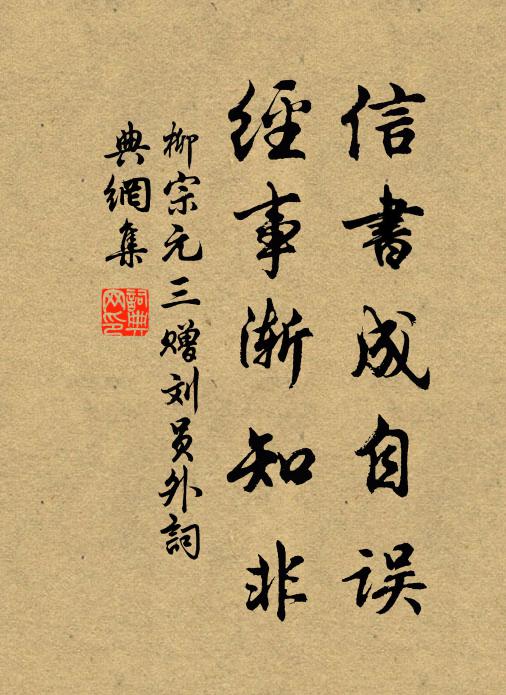 信書成自误
經事渐知非
柳宗元三赠刘员外詞
典網集
詞典網印